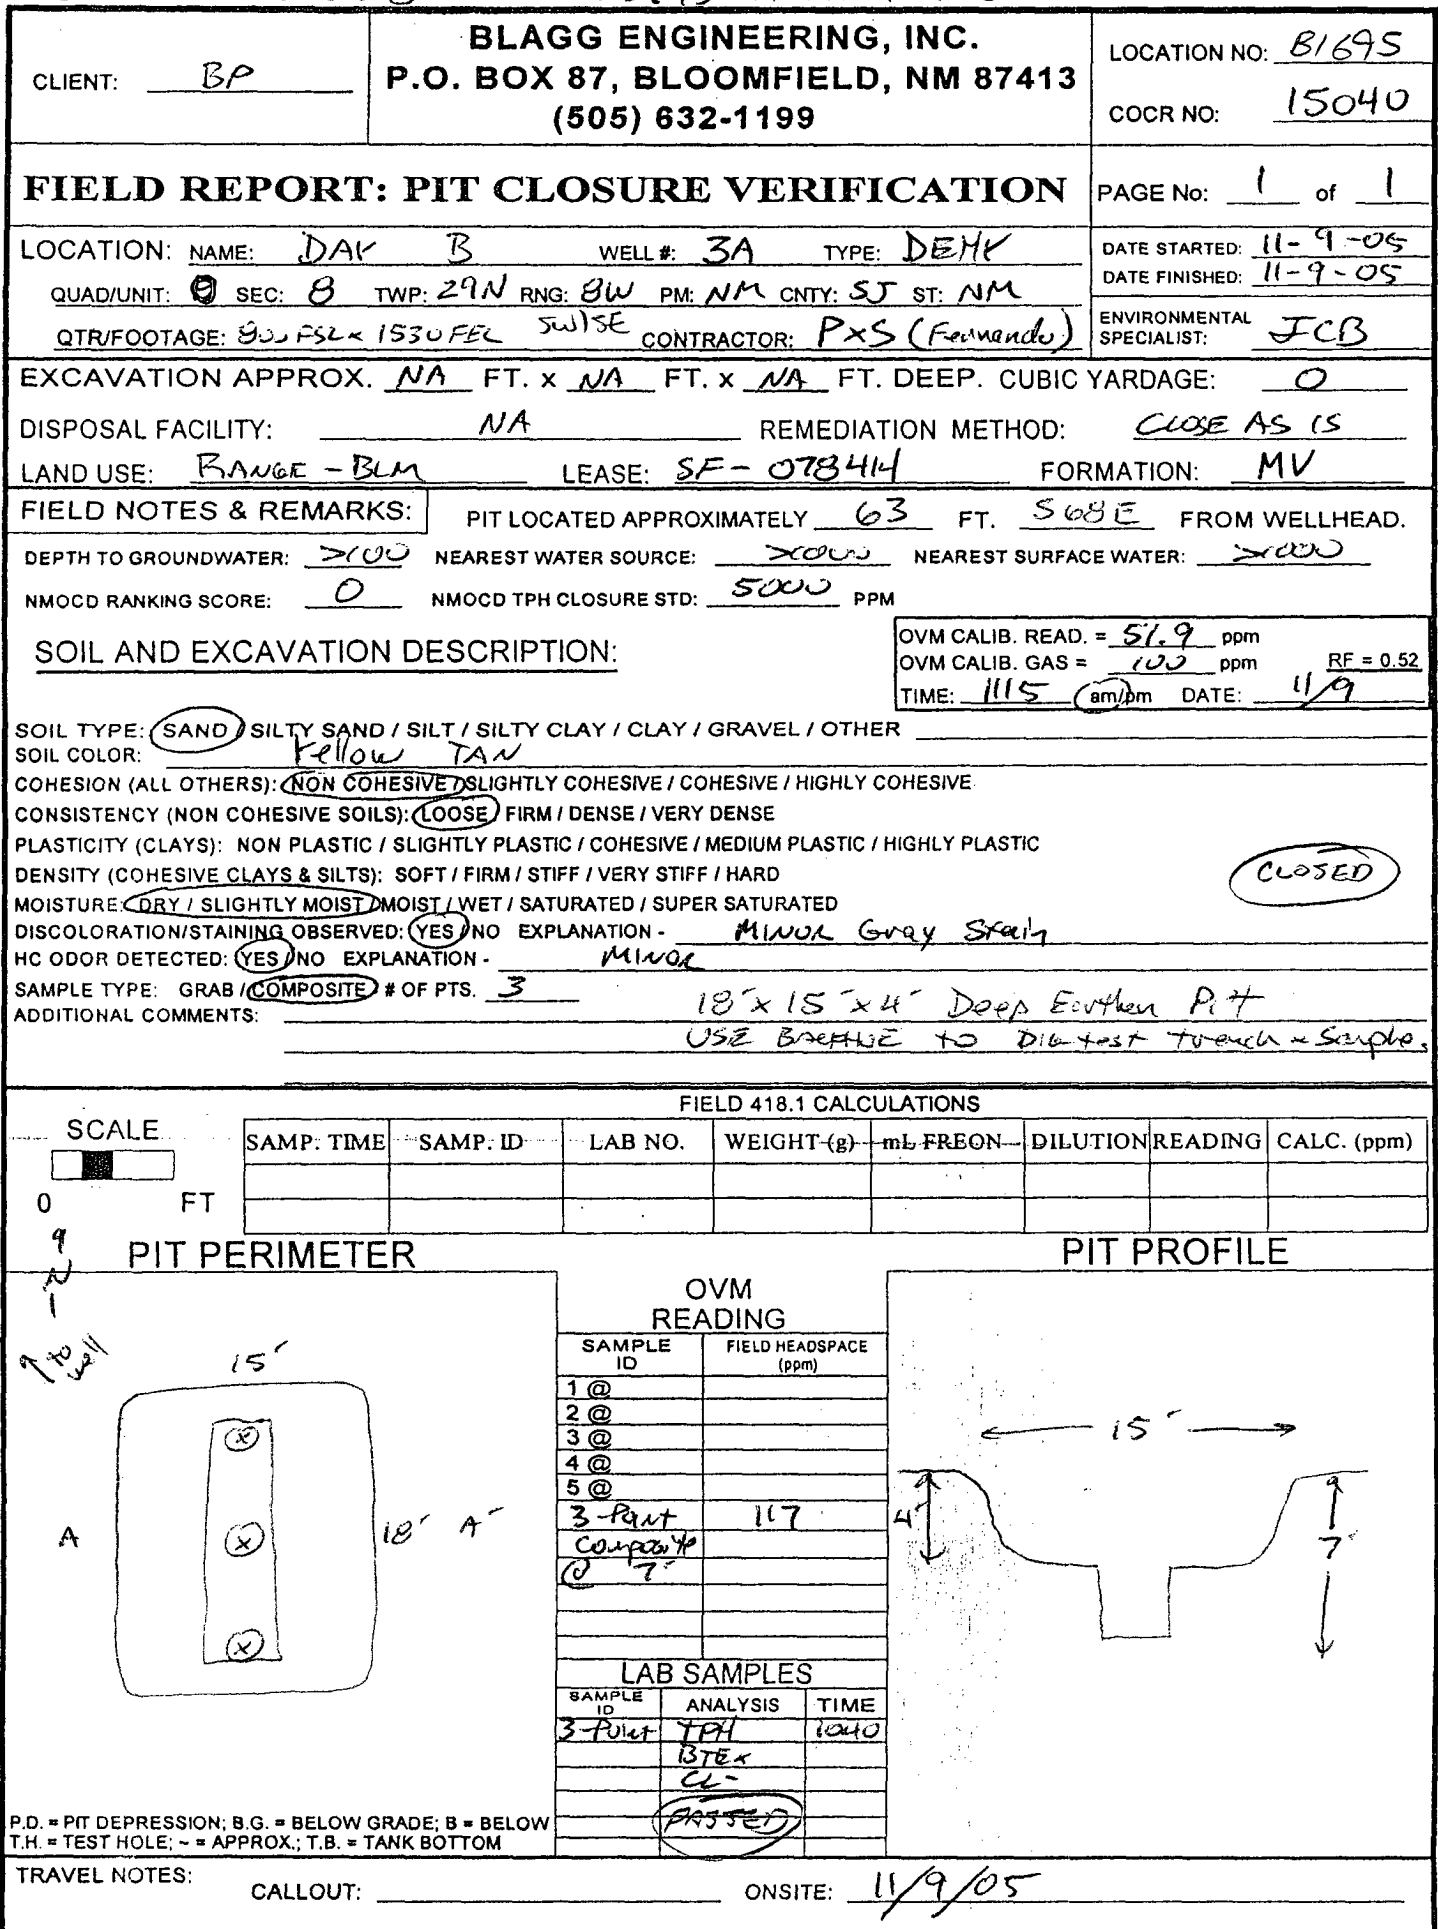 BLAGG ENGINEERING, INC.
P.O. BOX 87, BLOOMFIELD, NM 87413
(505) 632-1199
CLIENT: BP
LOCATION NO: B1695
COCR NO: 15040
FIELD REPORT: PIT CLOSURE VERIFICATION
PAGE No: 1 of 1
LOCATION: NAME: DAY B WELL #: 3A TYPE: DEHY
DATE STARTED: 11-9-05
DATE FINISHED: 11-9-05
QUAD/UNIT: O SEC: 8 TWP: 29N RNG: 8W PM: NM CNTY: SJ ST: NM
QTR/FOOTAGE: 900 FSL x 1530 FEL SW/SE CONTRACTOR: P×S (Fernando)
ENVIRONMENTAL SPECIALIST: JCB
EXCAVATION APPROX. NA FT. x NA FT. x NA FT. DEEP. CUBIC YARDAGE: 0
DISPOSAL FACILITY: NA REMEDIATION METHOD: CLOSE AS IS
LAND USE: RANGE - BLM LEASE: SF-078414 FORMATION: MV
FIELD NOTES & REMARKS: PIT LOCATED APPROXIMATELY 63 FT. S68E FROM WELLHEAD.
DEPTH TO GROUNDWATER: >100 NEAREST WATER SOURCE: >1000 NEAREST SURFACE WATER: >1000
NMOCD RANKING SCORE: 0 NMOCD TPH CLOSURE STD: 5000 PPM
SOIL AND EXCAVATION DESCRIPTION:
OVM CALIB. READ. = 51.9 ppm
OVM CALIB. GAS = 100 ppm RF = 0.52
TIME: 1115 am/pm DATE: 11/9
SOIL TYPE: SAND / SILTY SAND / SILT / SILTY CLAY / CLAY / GRAVEL / OTHER
SOIL COLOR: Yellow TAN
COHESION (ALL OTHERS): NON COHESIVE / SLIGHTLY COHESIVE / COHESIVE / HIGHLY COHESIVE
CONSISTENCY (NON COHESIVE SOILS): LOOSE / FIRM / DENSE / VERY DENSE
PLASTICITY (CLAYS): NON PLASTIC / SLIGHTLY PLASTIC / COHESIVE / MEDIUM PLASTIC / HIGHLY PLASTIC
DENSITY (COHESIVE CLAYS & SILTS): SOFT / FIRM / STIFF / VERY STIFF / HARD
CLOSED
MOISTURE: DRY / SLIGHTLY MOIST / MOIST / WET / SATURATED / SUPER SATURATED
DISCOLORATION/STAINING OBSERVED: YES / NO EXPLANATION - MINOR Gray Stain
HC ODOR DETECTED: YES / NO EXPLANATION - MINOR
SAMPLE TYPE: GRAB / COMPOSITE # OF PTS. 3
ADDITIONAL COMMENTS: 18' x 15' x 4' Deep Earthen Pit
USE BACKHOE to Dig test trench & Sample.
FIELD 418.1 CALCULATIONS
SCALE
0 FT
SAMP. TIME SAMP. ID LAB NO. WEIGHT (g) mL FREON DILUTION READING CALC. (ppm)
PIT PERIMETER
N
to well
15'
A
18' A'
OVM READING
SAMPLE ID FIELD HEADSPACE (ppm)
1 @
2 @
3 @
4 @
5 @
3-Point 117
Composite
@ 7'
LAB SAMPLES
SAMPLE ID ANALYSIS TIME
3-Point TPH 1040
BTEX
CL-
PASSED
PIT PROFILE
15'
4'
7'
P.D. = PIT DEPRESSION; B.G. = BELOW GRADE; B = BELOW
T.H. = TEST HOLE; ~ = APPROX.; T.B. = TANK BOTTOM
TRAVEL NOTES: CALLOUT: ONSITE: 11/9/05